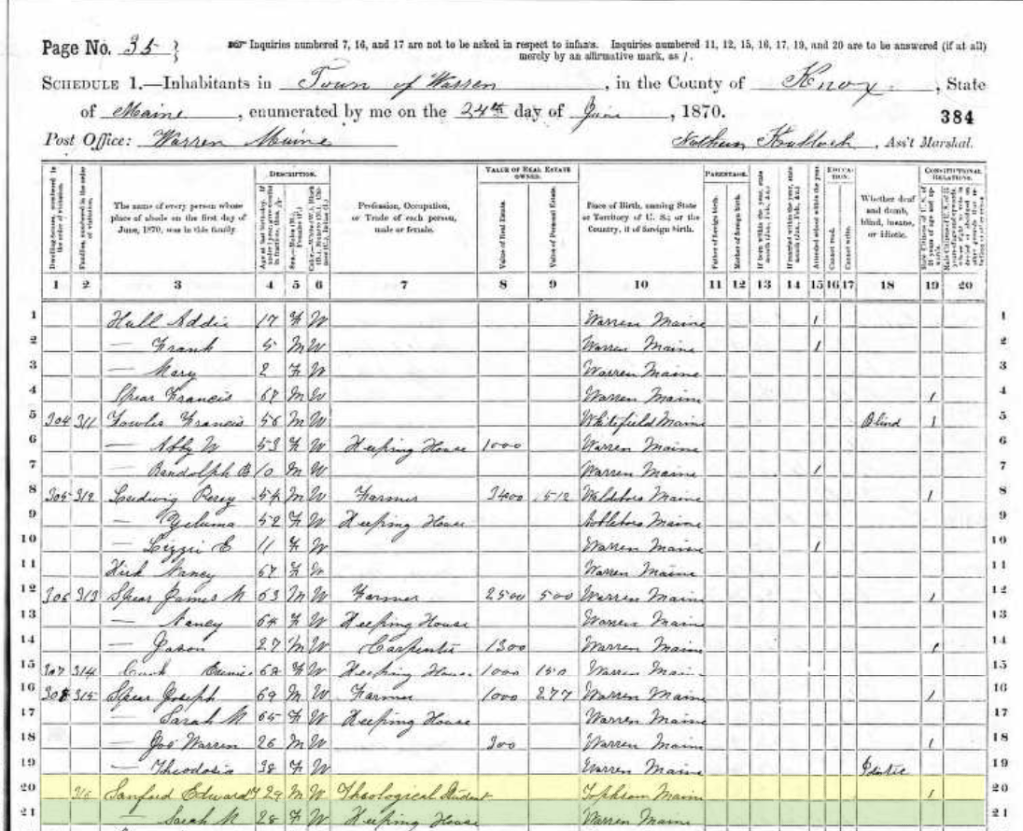 Page No. 35 } ☞ Inquiries numbered 7, 16, and 17 are not to be asked in respect to infants. Inquiries numbered 11, 12, 15, 16, 17, 19, and 20 are to be answered (if at all)
merely by an affirmative mark, as /.
SCHEDULE 1.—Inhabitants in Town of Warren, in the County of Knox, State
of Maine, enumerated by me on the 24th day of June, 1870. 384
Post Office: Warren Maine Ass't Marshal.
DESCRIPTION. VALUE OF REAL ESTATE OWNED. PARENTAGE. EDUCATION. CONSTITUTIONAL RELATIONS.
The name of every person whose place of abode on the first day of June, 1870, was in this family.
Profession, Occupation, or Trade of each person, male or female.
Value of Real Estate.
Value of Personal Estate.
Place of Birth, naming State or Territory of U. S.; or the Country, if of foreign birth.
Father of foreign birth.
Mother of foreign birth.
Attended school within the year.
Cannot read.
Cannot write.
Whether deaf and dumb, blind, insane, or idiotic.
1 2 3 4 5 6 7 8 9 10 11 12 13 14 15 16 17 18 19 20
1 Hall Addie 17 F W Warren Maine 1 1
2 — Frank 5 M W Warren Maine 1 2
3 — Mary 2 F W Warren Maine 3
4 Spear Francis M W Warren Maine 1 4
5 304 311 Fowles Francis 56 M W Whitefield Maine Blind 1 5
6 — Abby W 53 F W Keeping House 1000 Warren Maine 6
7 — Randolph B 10 M W Warren Maine 1 7
8 305 312 Ludwig Percy 54 M W Farmer 3400 512 Waldoboro Maine 1 8
9 — 52 F W Keeping House Maine 9
10 — Lizzie E 11 F W Warren Maine 1 10
11 Kirk Nancy 67 F W Warren Maine 11
12 306 313 Spear James M 63 M W Farmer 2500 500 Warren Maine 1 12
13 — Nancy 64 F W Keeping House Warren Maine 13
14 — Jason 27 M W Carpenter 1300 Warren Maine 1 14
15 307 314 F W Keeping House 1000 150 Warren Maine 15
16 308 315 Spear Joseph 69 M W Farmer 1000 277 Warren Maine 1 16
17 — Sarah M 65 F W Keeping House Warren Maine 17
18 — Warren 26 M W 300 Warren Maine 1 18
19 — Theodosia 38 F W Warren Maine 19
20 316 Sanford Edward 29 M W Theological Student Topsham Maine 1 20
21 — Sarah M 28 F W Keeping House Warren Maine 21